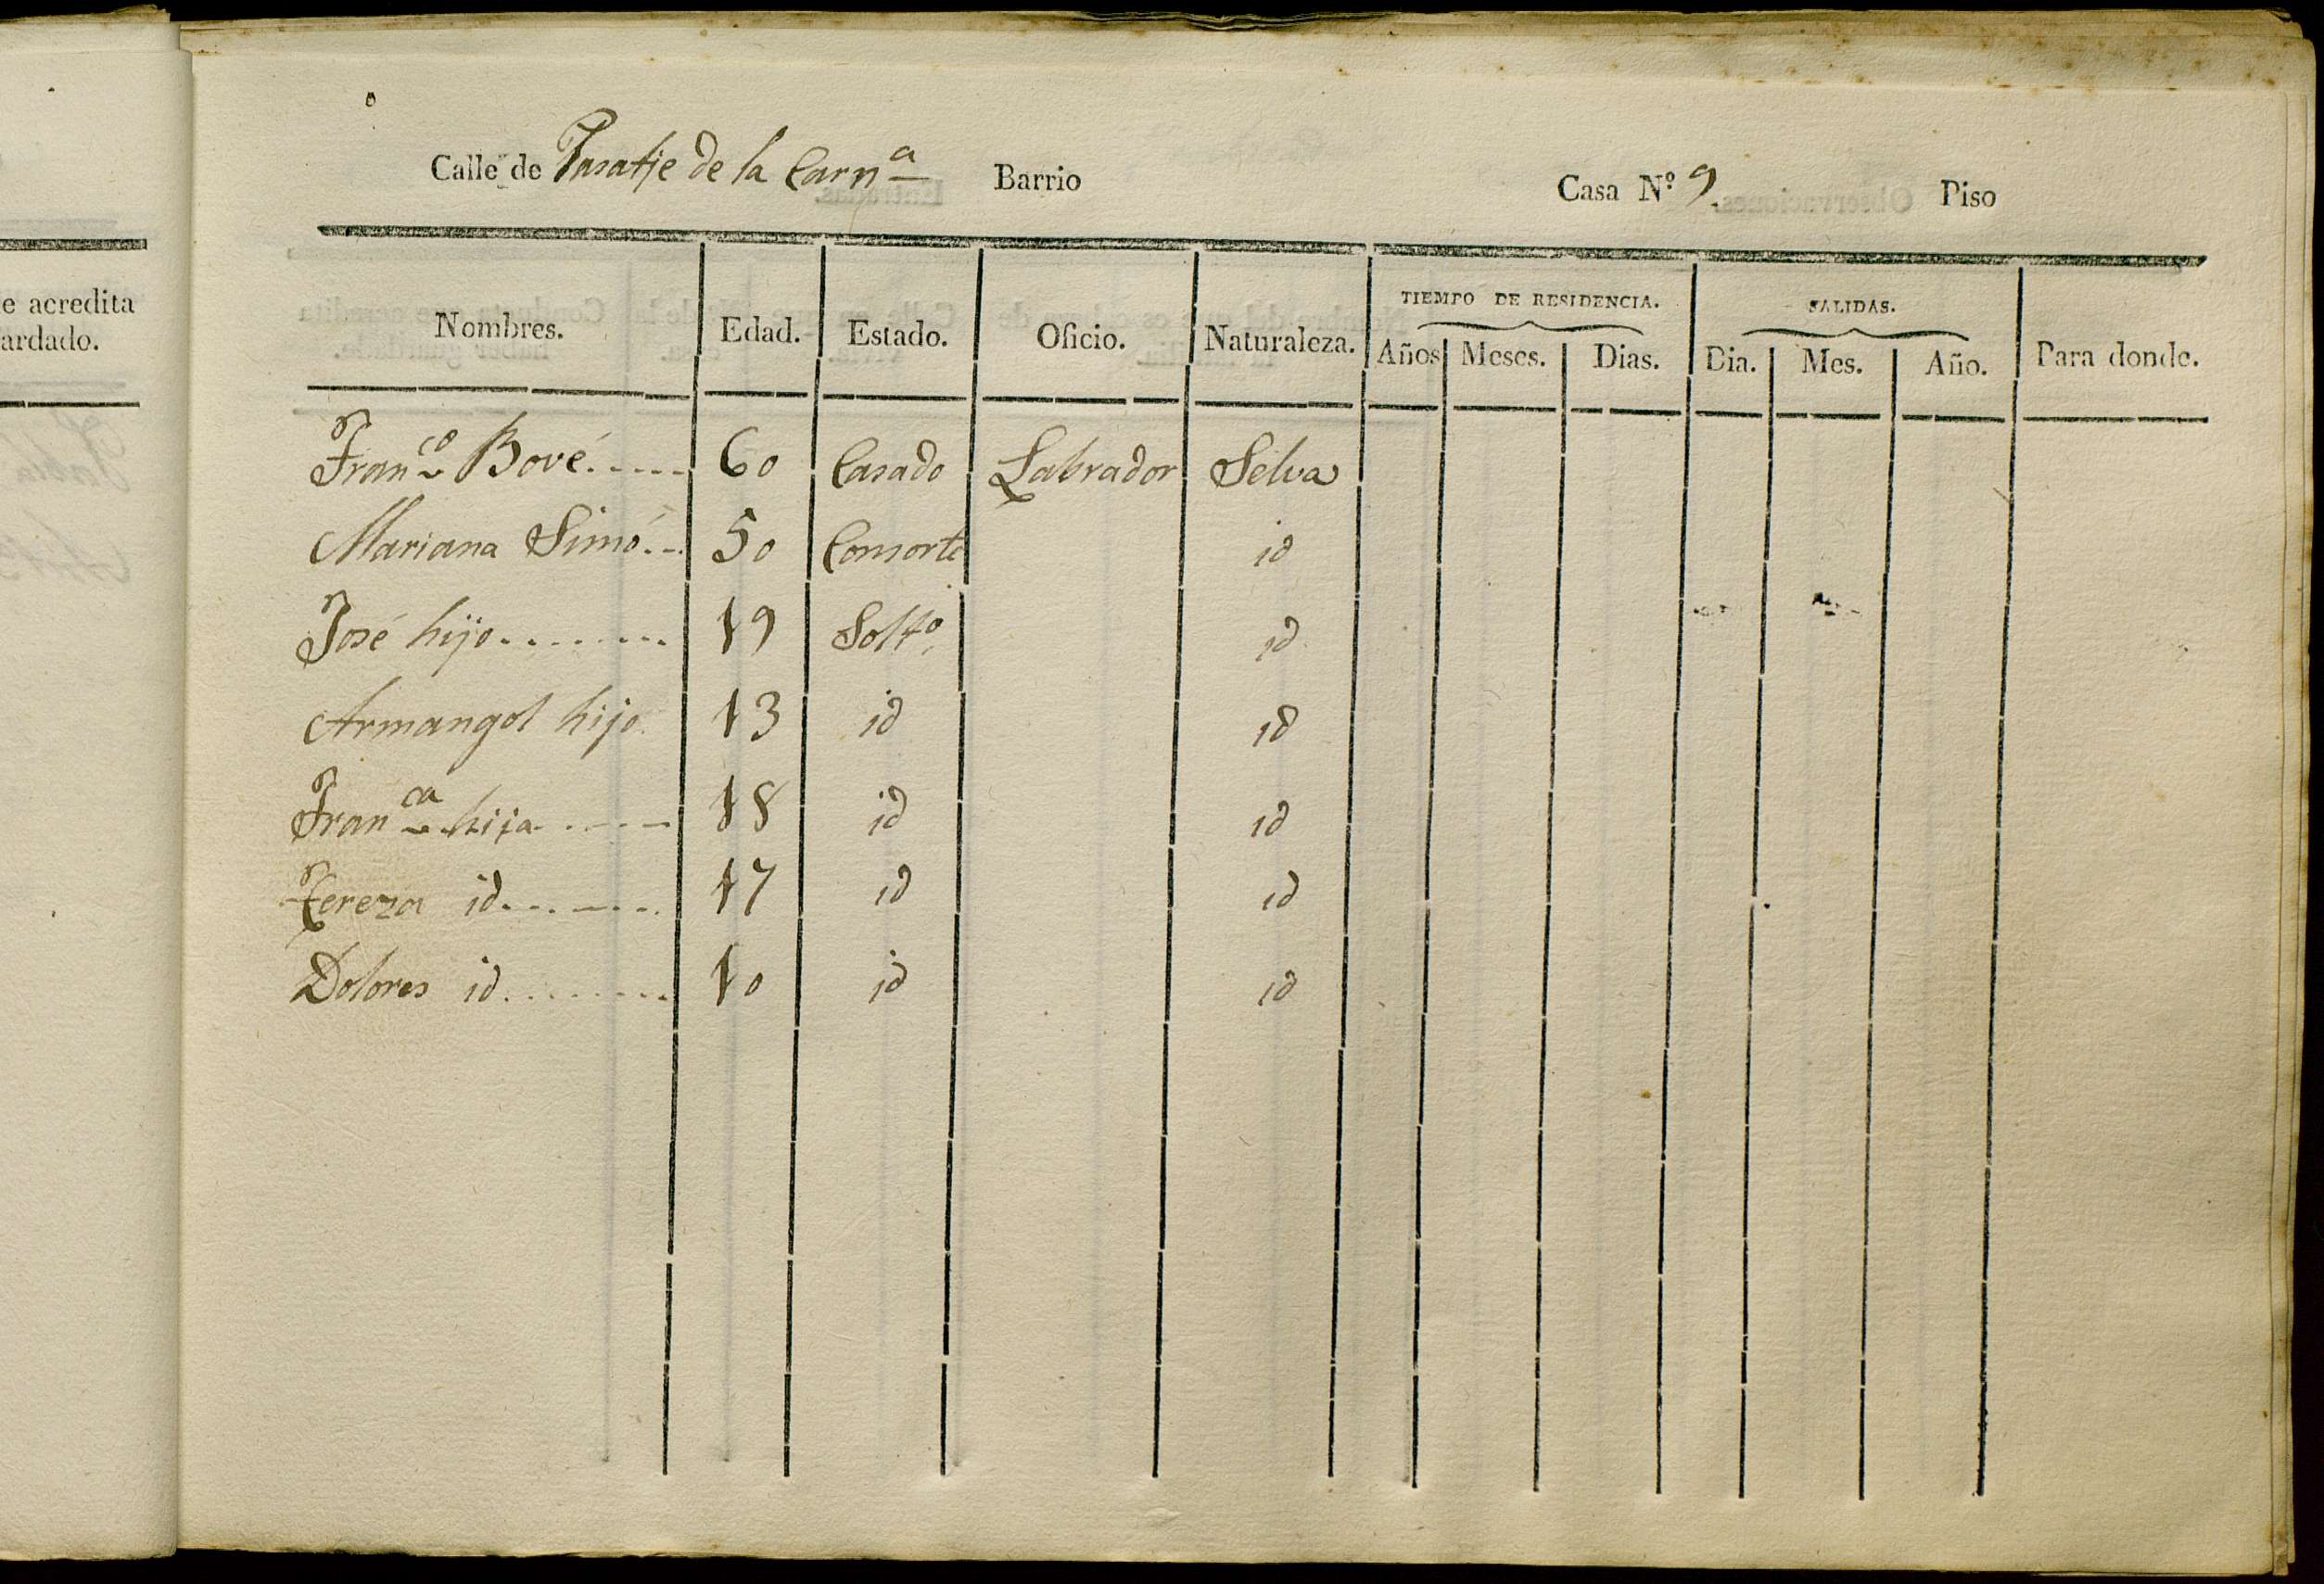 e acredita
ardado.
Calle de Pasatje de la Carnª Barrio Casa N.º 9. Piso
TIEMPO DE RESIDENCIA. SALIDAS.
Nombres. Edad. Estado. Oficio. Naturaleza. Años Meses. Dias. Dia. Mes. Año. Para donde.
Franco Bové..... 60 Casado Labrador Selva
Mariana Simó... 50 Consorte id
José hijo........ 19 Soltº id
Armangol hijo. 13 id id
Franca hija..... 18 id id
Tereza id........ 17 id id
Dolores id........ 10 id id